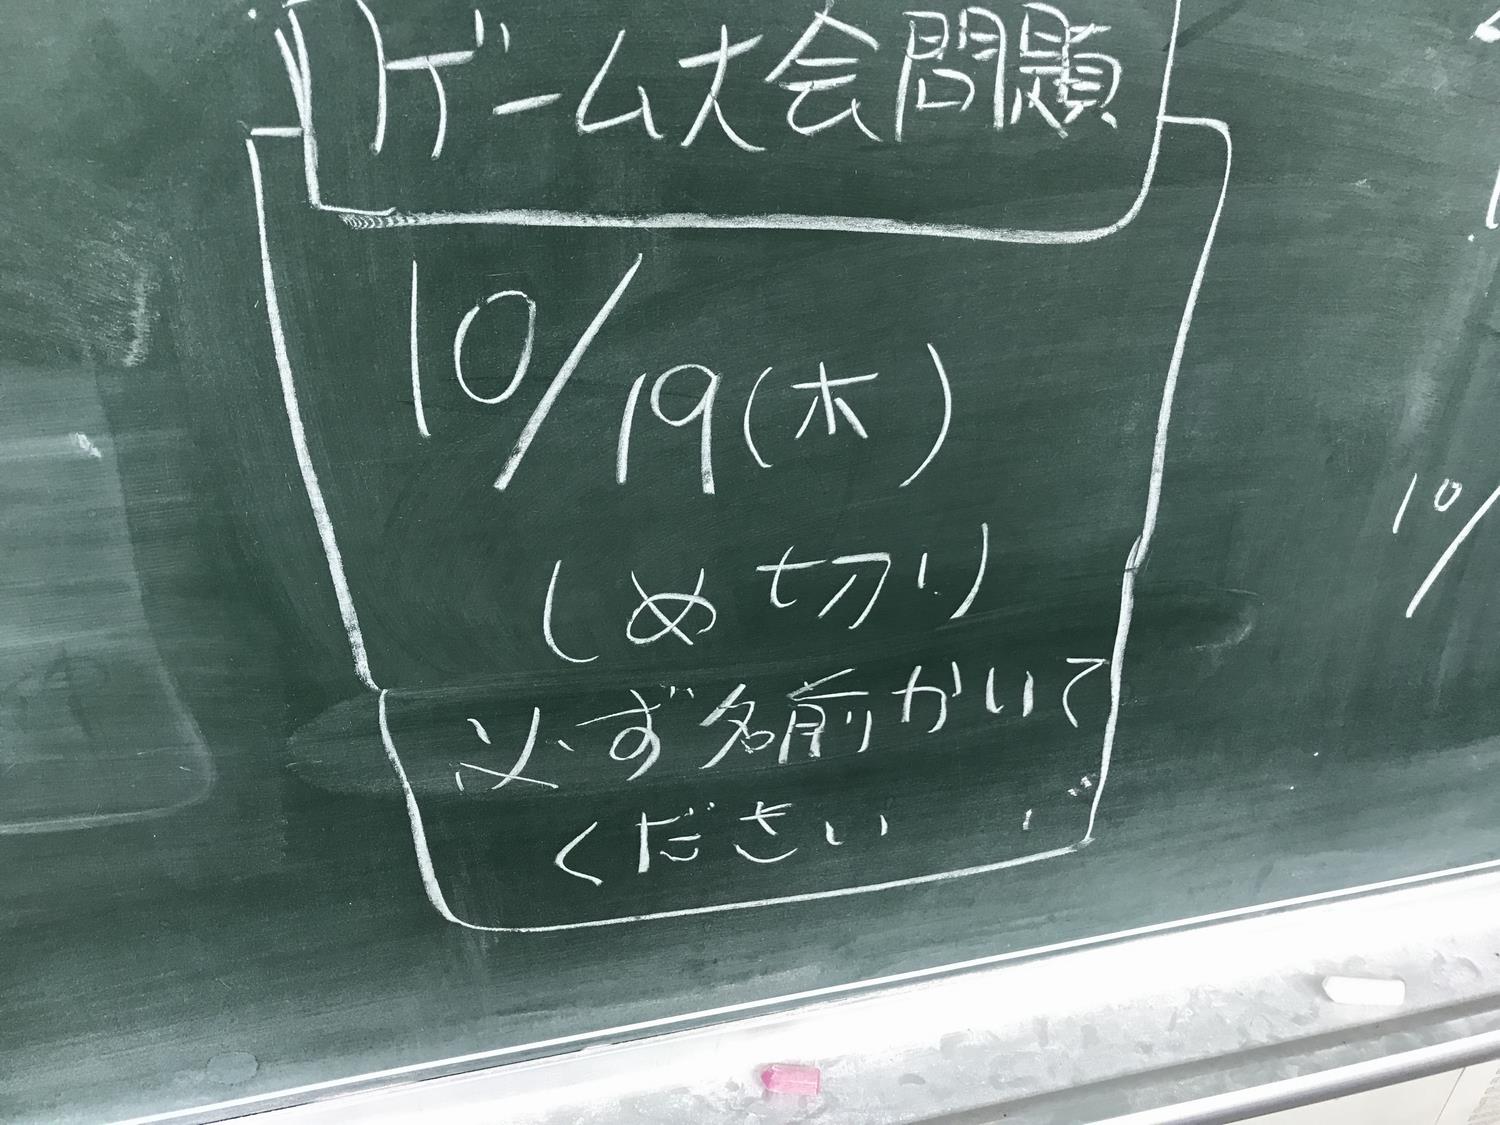 ゲーム大会問題
10/19(木)
しめ切り
必ず名前かいて
ください
10/